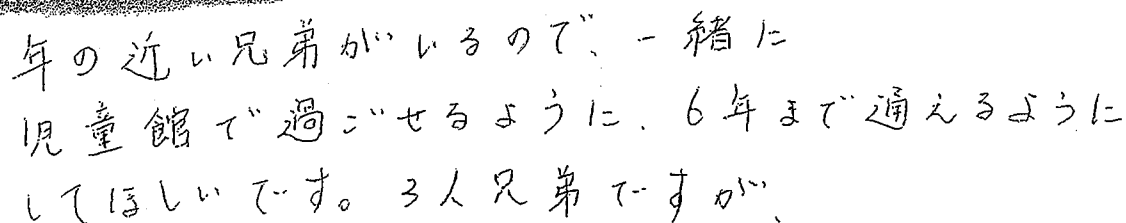 年の近い兄弟がいるので、一緒に
児童館で過ごせるように、6年まで通えるように
してほしいです。3人兄弟ですが、